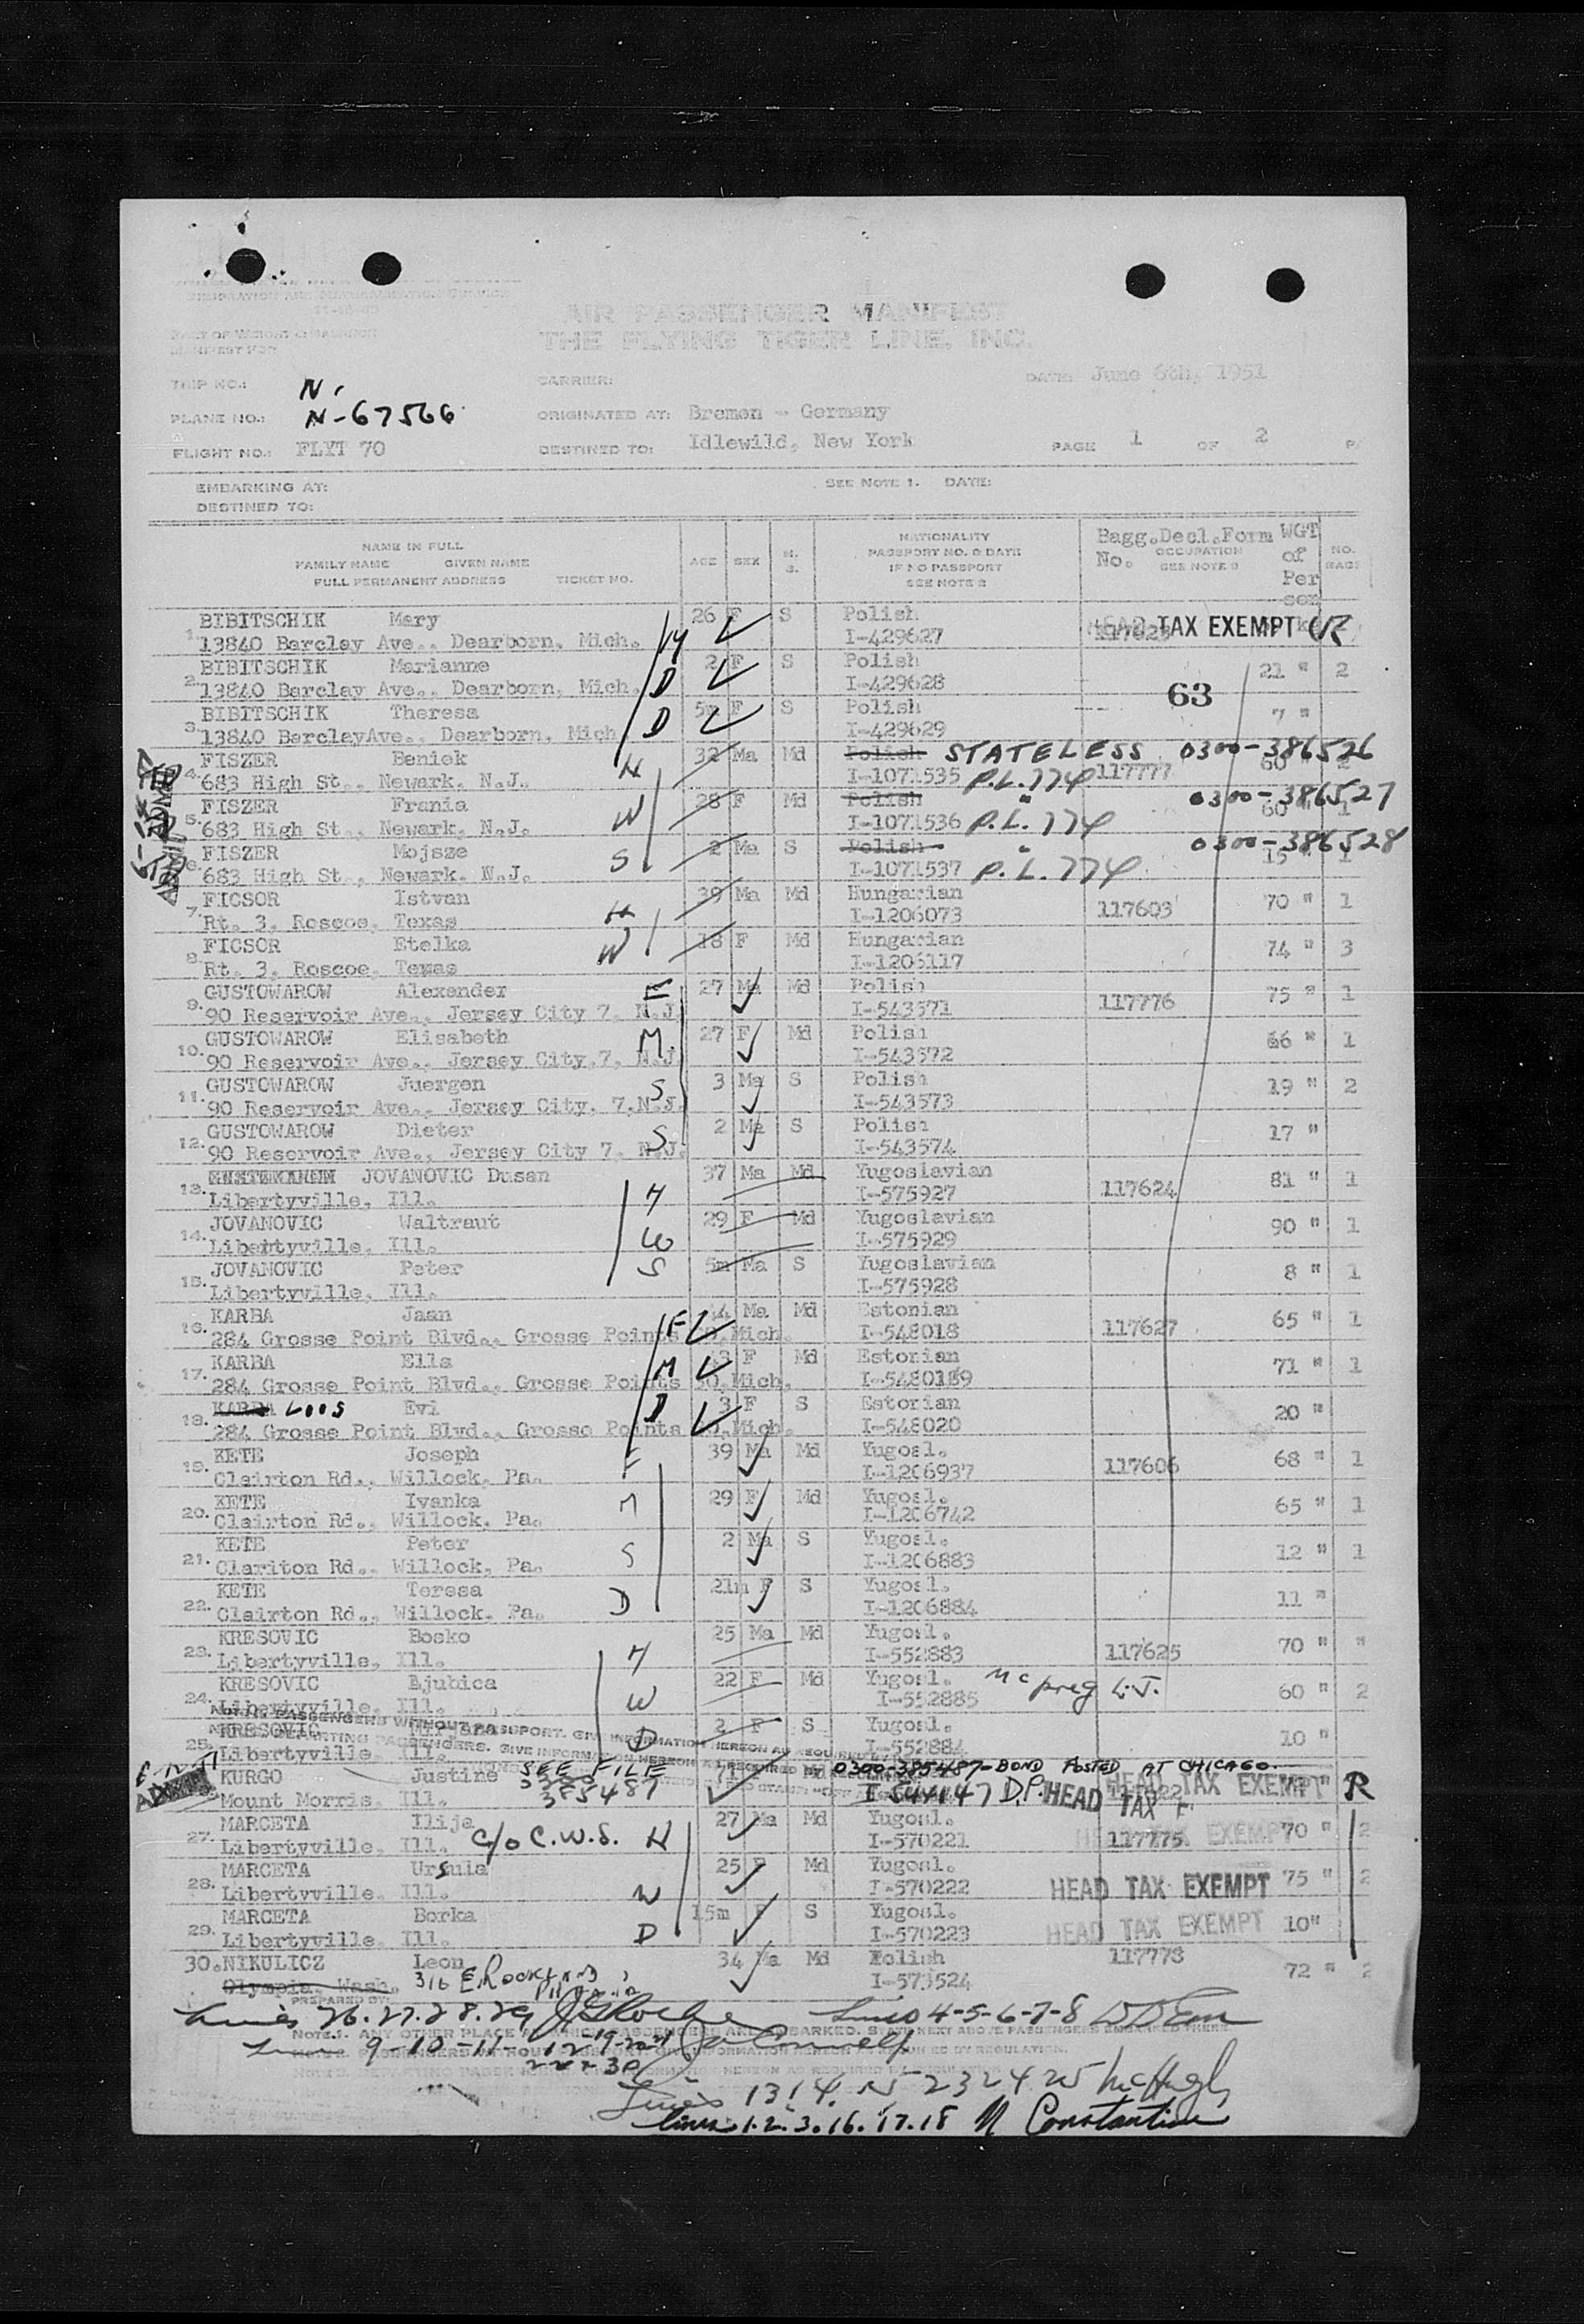 IMMIGRATION AND NATURALIZATION SERVICE
AIR PASSENGER MANIFEST
THE FLYING TIGER LINE, INC.
PART OF WEIGHT CLEARANCE
MANIFEST FOR
TRIP NO.: N- CARRIER: DATE: June 6th, 1951
PLANE NO.: N-67566 ORIGINATED AT: Bremen - Germany
FLIGHT NO.: FLYT 70 DESTINED TO: Idlewild, New York PAGE 1 OF 2
EMBARKING AT: SEE NOTE 1. DATE:
DESTINED TO:
NAME IN FULL
FAMILY NAME GIVEN NAME
FULL PERMANENT ADDRESS TICKET NO.
AGE SEX M. S.
NATIONALITY
PASSPORT NO. & DATE
IF NO PASSPORT
SEE NOTE 2
Bagg.Decl.Form No.
OCCUPATION
SEE NOTE 3
WGT of Per son
NO. BAGS
BIBITSCHIK Mary 26 F S Polish
1. 13840 Barclay Ave., Dearborn, Mich. M I-429627 HEAD TAX EXEMPT R
BIBITSCHIK Marianne 2 F S Polish 21 " 2
2. 13840 Barclay Ave., Dearborn, Mich. D I-429628 63
BIBITSCHIK Theresa 5m F S Polish 7 "
3. 13840 BarclayAve., Dearborn, Mich D I-429629
FISZER Beniek 32 Ma Md Polish STATELESS 0300-386526
4. 683 High St., Newark, N.J. H I-1071535 P.L.774 117777 60 2
FISZER Frania 28 F Md Polish " 0300-386527
5. 683 High St., Newark, N.J. W I-1071536 P.L. 774 60 " 1
FISZER Mojsze 2 Ma S Polish " 0300-386528
6. 683 High St., Newark, N.J. S I-1071537 P.L.774 15 " 1
FICSOR Istvan 39 Ma Md Hungarian 70 " 1
7. Rt. 3, Roscoe, Texas H I-1206073 117603
FICSOR Etelka 18 F Md Hungarian 74 " 3
8. Rt. 3, Roscoe, Texas W I-1206117
GUSTOWAROW Alexander F 27 Ma Md Polish 75 " 1
9. 90 Reservoir Ave., Jersey City 7, N.J. I-543571 117776
GUSTOWAROW Elisabeth M 27 F Md Polish 66 " 1
10. 90 Reservoir Ave., Jersey City,7, N.J. I-543572
GUSTOWAROW Juergen S 3 Ma S Polish 19 " 2
11. 90 Reservoir Ave., Jersey City, 7,N.J. I-543573
GUSTOWAROW Dieter S 2 Ma S Polish 17 "
12. 90 Reservoir Ave., Jersey City 7, N.J. I-543574
JOVANOVIC Dusan 37 Ma Md Yugoslavian 81 " 1
13. Libertyville, Ill. H I-575927 117624
JOVANOVIC Waltraut 29 F Md Yugoslavian 90 " 1
14. Libertyville, Ill. W I-575929
JOVANOVIC Peter S 5m Ma S Yugoslavian 8 " 1
15. Libertyville, Ill. I-575928
KARBA Jaan Ma Md Estonian 65 " 1
16. 284 Grosse Point Blvd., Grosse Points 30,Mich. F I-548018 117627
KARBA Ella F Md Estonian 71 " 1
17. 284 Grosse Point Blvd., Grosse Points 30,Mich. M I-548019
KARBA LOOS Evi 3 F S Estonian 20 "
18. 284 Grosse Point Blvd., Grosse Points 30,Mich. D I-548020
KETE Joseph 39 Ma Md Yugosl. 68 " 1
19. Clairton Rd., Willock, Pa. F I-1206937 117606
KETE Ivanka M 29 F Md Yugosl. 65 " 1
20. Clairton Rd., Willock, Pa. I-1206742
KETE Peter S 2 Ma S Yugosl. 12 " 1
21. Clariton Rd., Willock, Pa. I-1206883
KETE Teresa D 21m F S Yugosl. 11 "
22. Clairton Rd., Willock, Pa. I-1206884
KRESOVIC Bosko 25 Ma Md Yugosl. 70 " "
23. Libertyville, Ill. H I-552883 117625
KRESOVIC Bjubica 22 F Md Yugosl. Mc preg L.J. 60 " 2
24. Libertyville, Ill. W I-552885
KRESOVIC D 2 F S Yugosl. 10 "
25. Libertyville, Ill. I-552884
KURGO Justine SEE FILE 71 0300-385487-BOND POSTED AT CHICAGO
Mount Morris, Ill. 385487 I 544147 D.P. HEAD TAX EXEMPT R
MARCETA Ilija 27 Ma Md Yugosl. 70 " 2
27. Libertyville, Ill. c/o C.W.S. H I-570221 117775 HEAD TAX EXEMPT
MARCETA Ursula 25 F Md Yugosl. 75 " 2
28. Libertyville, Ill. W I-570222 HEAD TAX EXEMPT
MARCETA Borka 15m F S Yugosl. 10"
29. Libertyville, Ill. D I-570223 HEAD TAX EXEMPT
30. NIKULICZ Leon 34 Ma Md Polish 117778 72 " 2
Olympia, Wash. 316 E. I-573524
PREPARED BY:
Lines 26.27.28.29 Lines 4-5-6-7-8
NOTE 1. ANY OTHER PLACE AT WHICH PASSENGERS ARE EMBARKED. STATE NEXT ABOVE PASSENGERS EMBARKED THERE
Lines 9-10-11-12-19-20-21
22 & 30
Lines 13 14. 15 23 24 25 McHugh
lines 1.2.3.16.17.18 N Constantine